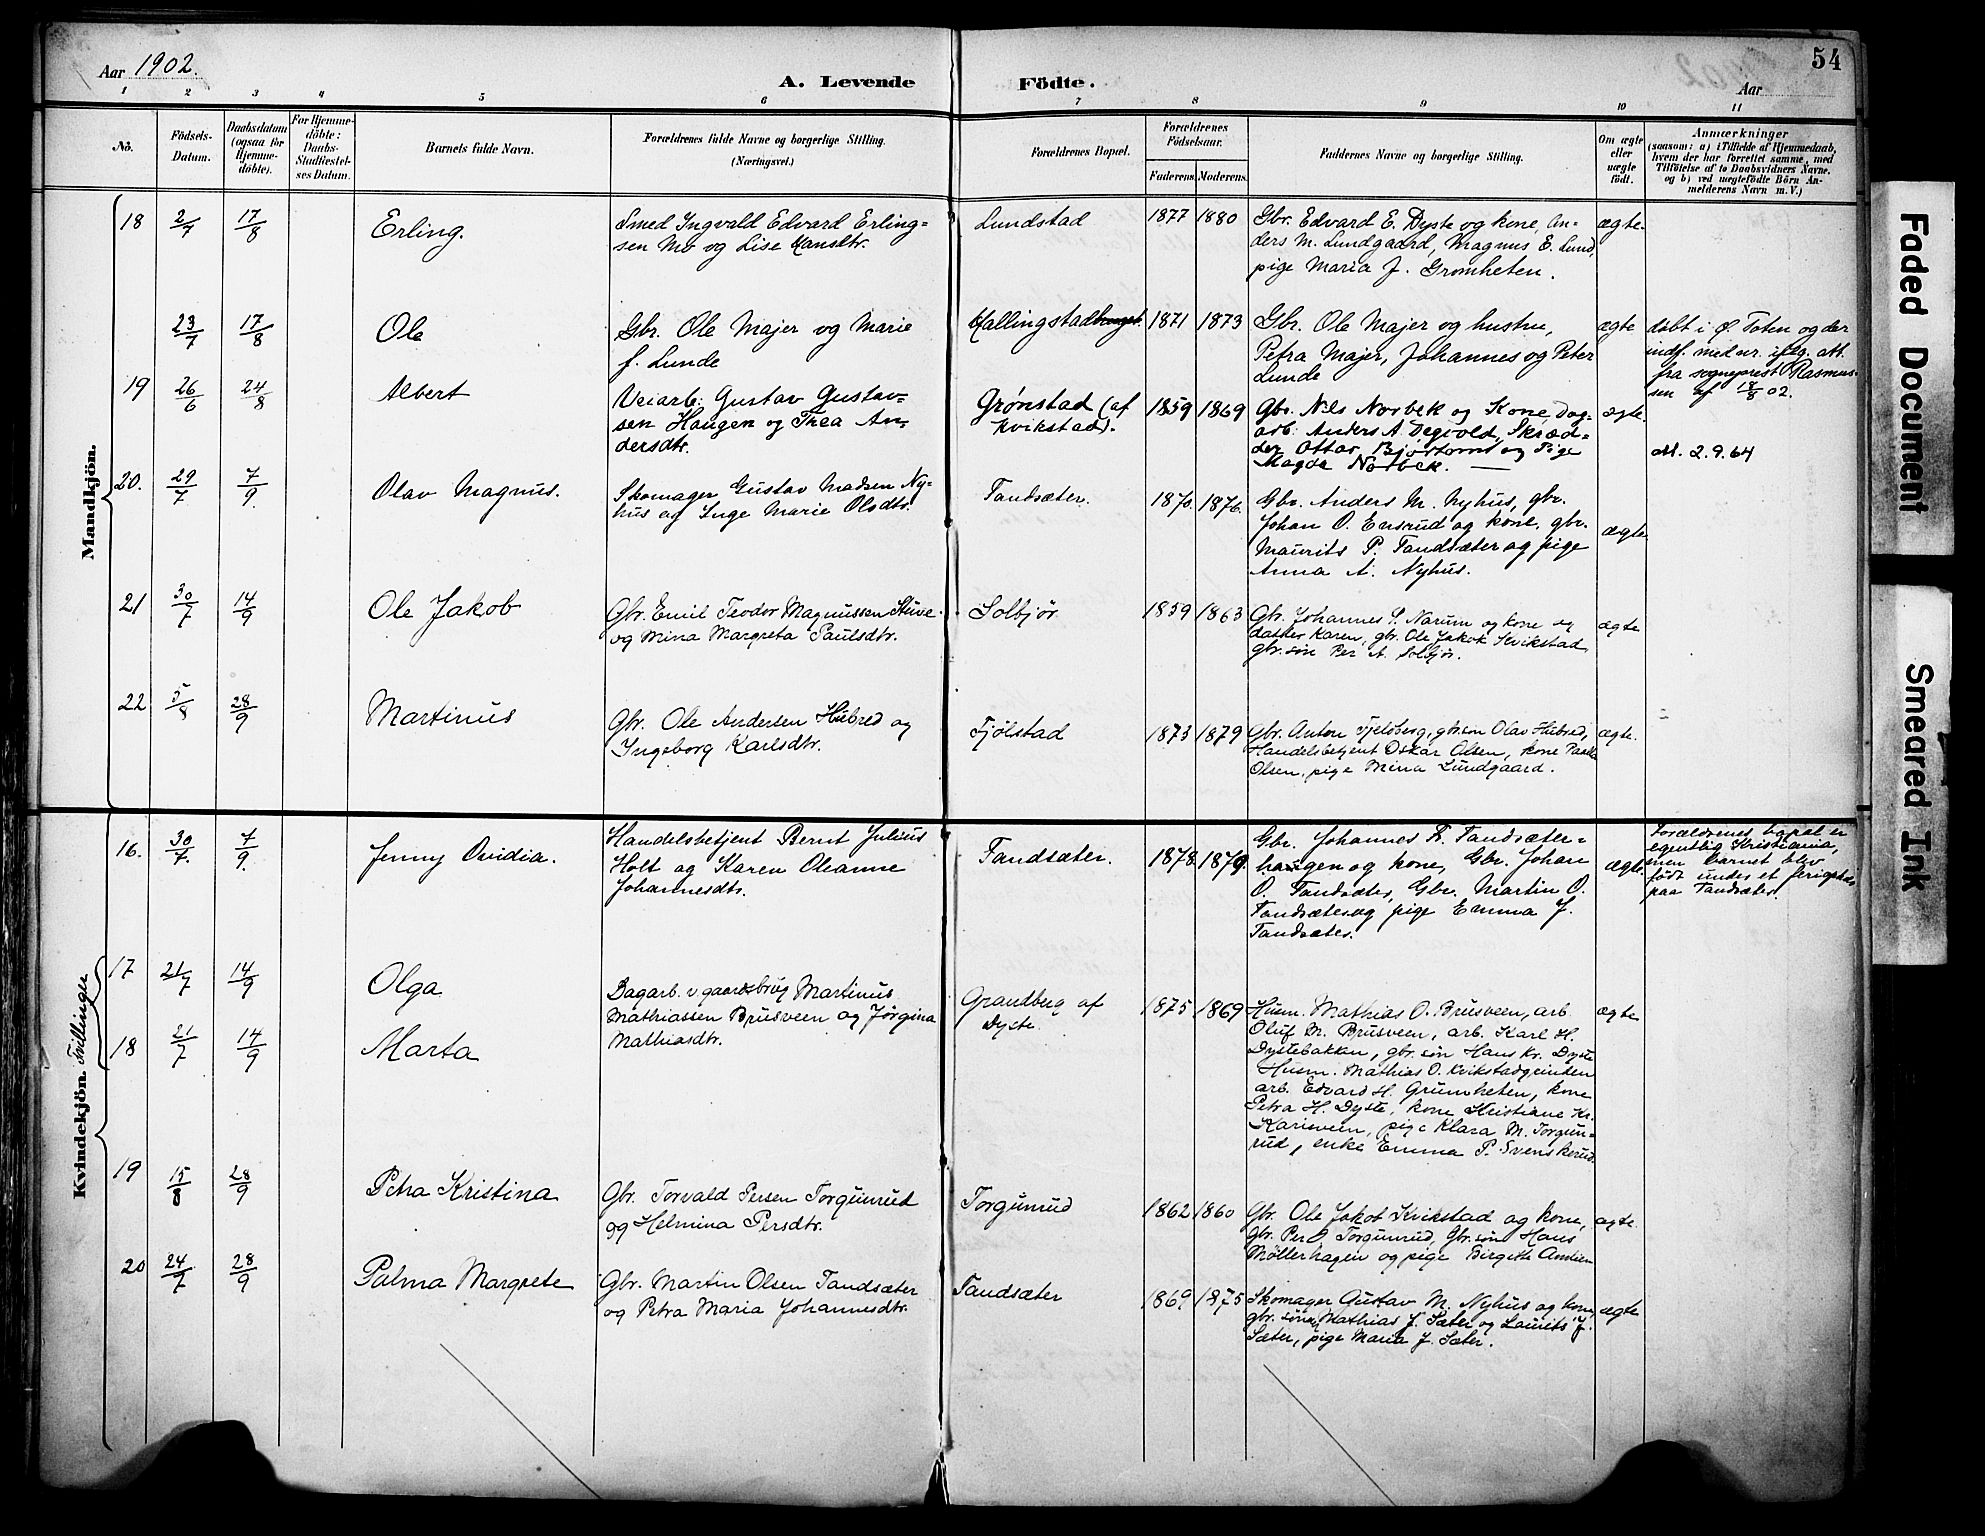 54
Aar 1902.
A. Levende Födte.
Aar
1 2 3 4 5 6 7 8 9 10 11
No.
Födsels-
Datum.
Daabsdatum
(ogsaa for
Hjemme-
döbte).
For Hjemme-
döbte:
Daabs-
Stadfæstel-
ses Datum.
Barnets fulde Navn.
Forældrenes fulde Navne og borgerlige Stilling.
(Næringsvei.)
Forældrenes Bopæl.
Forældrenes
Födselsaar.
Faderens. Moderens.
Faddernes Navne og borgerlige Stilling.
Om ægte
eller
uægte
födt.
Anmærkninger
(saasom: a) i Tilfælde af Hjemmedaab,
hvem der har forrettet samme, med
Tilföielse af to Daabsvidners Navne.
og b) ved uægtefödte Börn An-
melderens Navn m. V.)
Mandkjön.
18 2/7 17/8 Erling.
Smed Ingvald Edvard Erling-
sen Mo og Lise Hansdtr.
Lundstad 1877 1880
Gbr. Edvard E. Dyste og kone, An-
ders M. Lundgaard, Magnus E. Lund,
pige Maria J. Gromheten.
ægte.
23/7 17/8 Ole
Gbr. Ole Majer og Marie
f. Lunde
Hallingstad 1871 1873
Gbr. Ole Majer og hustru,
Petra Majer, Johannes og Peter
Lunde
ægte
døbt i Ø. Toten og der
indf. med nr. iflg. att.
fra sogneprest Rasmus-
sen af 18/8 02.
19 26/6 24/8 Albert
Veiarb. Gustav Gustav-
sen Haugen og Thea An-
dersdtr.
Grønstad (af
Kvikstad). 1859 1869
Gbr. Nils Norbek og Kone, Dag-
arb. Anders A. Degvold, Skræd-
der Ottar og Pige
Magda Norbek.
ægte.
M. 2.9.64
20. 29/7 7/9. Olav Magnus.
Skomager Gustav Madsen Ny-
hus og Inge Marie Olsdtr.
Tandsæter. 1870. 1876.
Gbr. Anders M. Nyhus, gbr.
Johan O. Ensrud og kone, gbr.
Maurits P. Tandsæter og pige
Anna A. Nyhus.
ægte.
21 30/7 14/9 Ole Jakob
Gbr. Emil Teodor Magnussen Stuve
og Mina Margreta Paulsdtr.
Solbjør 1859 1863
Gbr. Johannes P. Narum og kone og
datter Karen, gbr. Ole Jakob Kvikstad
gbr.søn Per A. Solbjør.
ægte
22 5/8 28/9 Martinus
Gbr. Ole Andersen Hubred og
Ingeborg Karlsdtr.
Fjølstad 1873 1879
Gbr. Anton Fjelsberg, gbr.søn Olav Hubred,
Handelsbetjent Oskar Olsen, kone
Olsen, pige Mina Lundgaard.
ægte.
Kvindekjön.
16. 30/7. 7/9. Jenny Ovidia.
Handelsbetjent Bernt Julius
Holt og Karen Oleanne
Johannesdtr.
Tandsæter. 1878. 1879.
Gbr. Johannes T. Tandsæter-
haugen og kone, Gbr. Johan
O. Tandsæter, Gbr. Martin O.
Tandsæter og pige Emma J.
Tandsæter.
ægte.
Forældrenes bopæl er
egentlig Kristiania,
men barnet blev
født under et
paa Tandsæter.
Tvillinger
17 21/7 14/9 Olga
Dagarb. v. gaardsbrug Martinus
Mathiassen Brusveen og Jørgina
Mathiasdtr.
18 21/7 14/9 Marta
Grandberg af
Dyste. 1875 1869
Husm. Mathias O. Brusveen, arb.
Oluf M. Brusveen, arb. Karl H.
Dystebakken, gbr.søn Hans Kr. Dyste
Husm. Mathias O. Kvikstadgrinden
arb. Edvard H. Grumheten, kone
Petra H. Dyste, kone Kristiane Kr.
Karisveen, pige Klara M. Torgun-
rud, enke Emma P. Svenskerud.
ægte
19 15/8 28/9 Petra Kristina
Gbr. Torvald Persen Torgunrud
og Helmina Persdtr.
Torgunrud 1862 1860
Gbr. Ole Jakob Kvikstad og kone,
Gbr. Per Torgunrud, Gbr.søn Hans
Møllerhagen og pige Birgitte Amlien
ægte.
20 24/7 28/9 Palma Margrete
Gbr. Martin Olsen Tandsæter
og Petra Maria Johannesdtr.
Tandsæter 1869 1875
Skomager Gustav M. Nyhus og kone,
gbr. sønn Mathias J. Sæter og Laurits J.
Sæter, pige Maria J. Sæter.
ægte
Faded Document
Smeared Ink